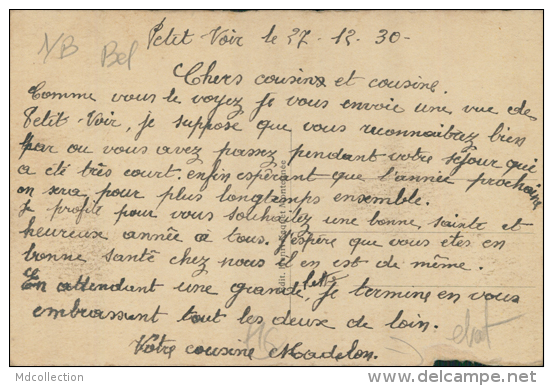 Petit Voir le 27-12-30-
NB Bel
Chers cousins et cousine.
Comme vous le voyez je vous envoie une vue de
Petit-Voir, je suppose que vous reconnaitrez bien
par ou vous avez passez pendant votre séjour qui
a été très court. enfin espérant que l'année prochaine
on sera pour plus longtemps ensemble.
Je profite pour vous souhaitez une bonne, sainte et
heureux année à tous. J'espère que vous êtes en
bonne santé chez nous il en est de même.
En attendant une grande lettre, je termine en vous
embrassant tout les deux de loin.
Votre cousine Madelon.
Mdcollection
www.delcampe.net